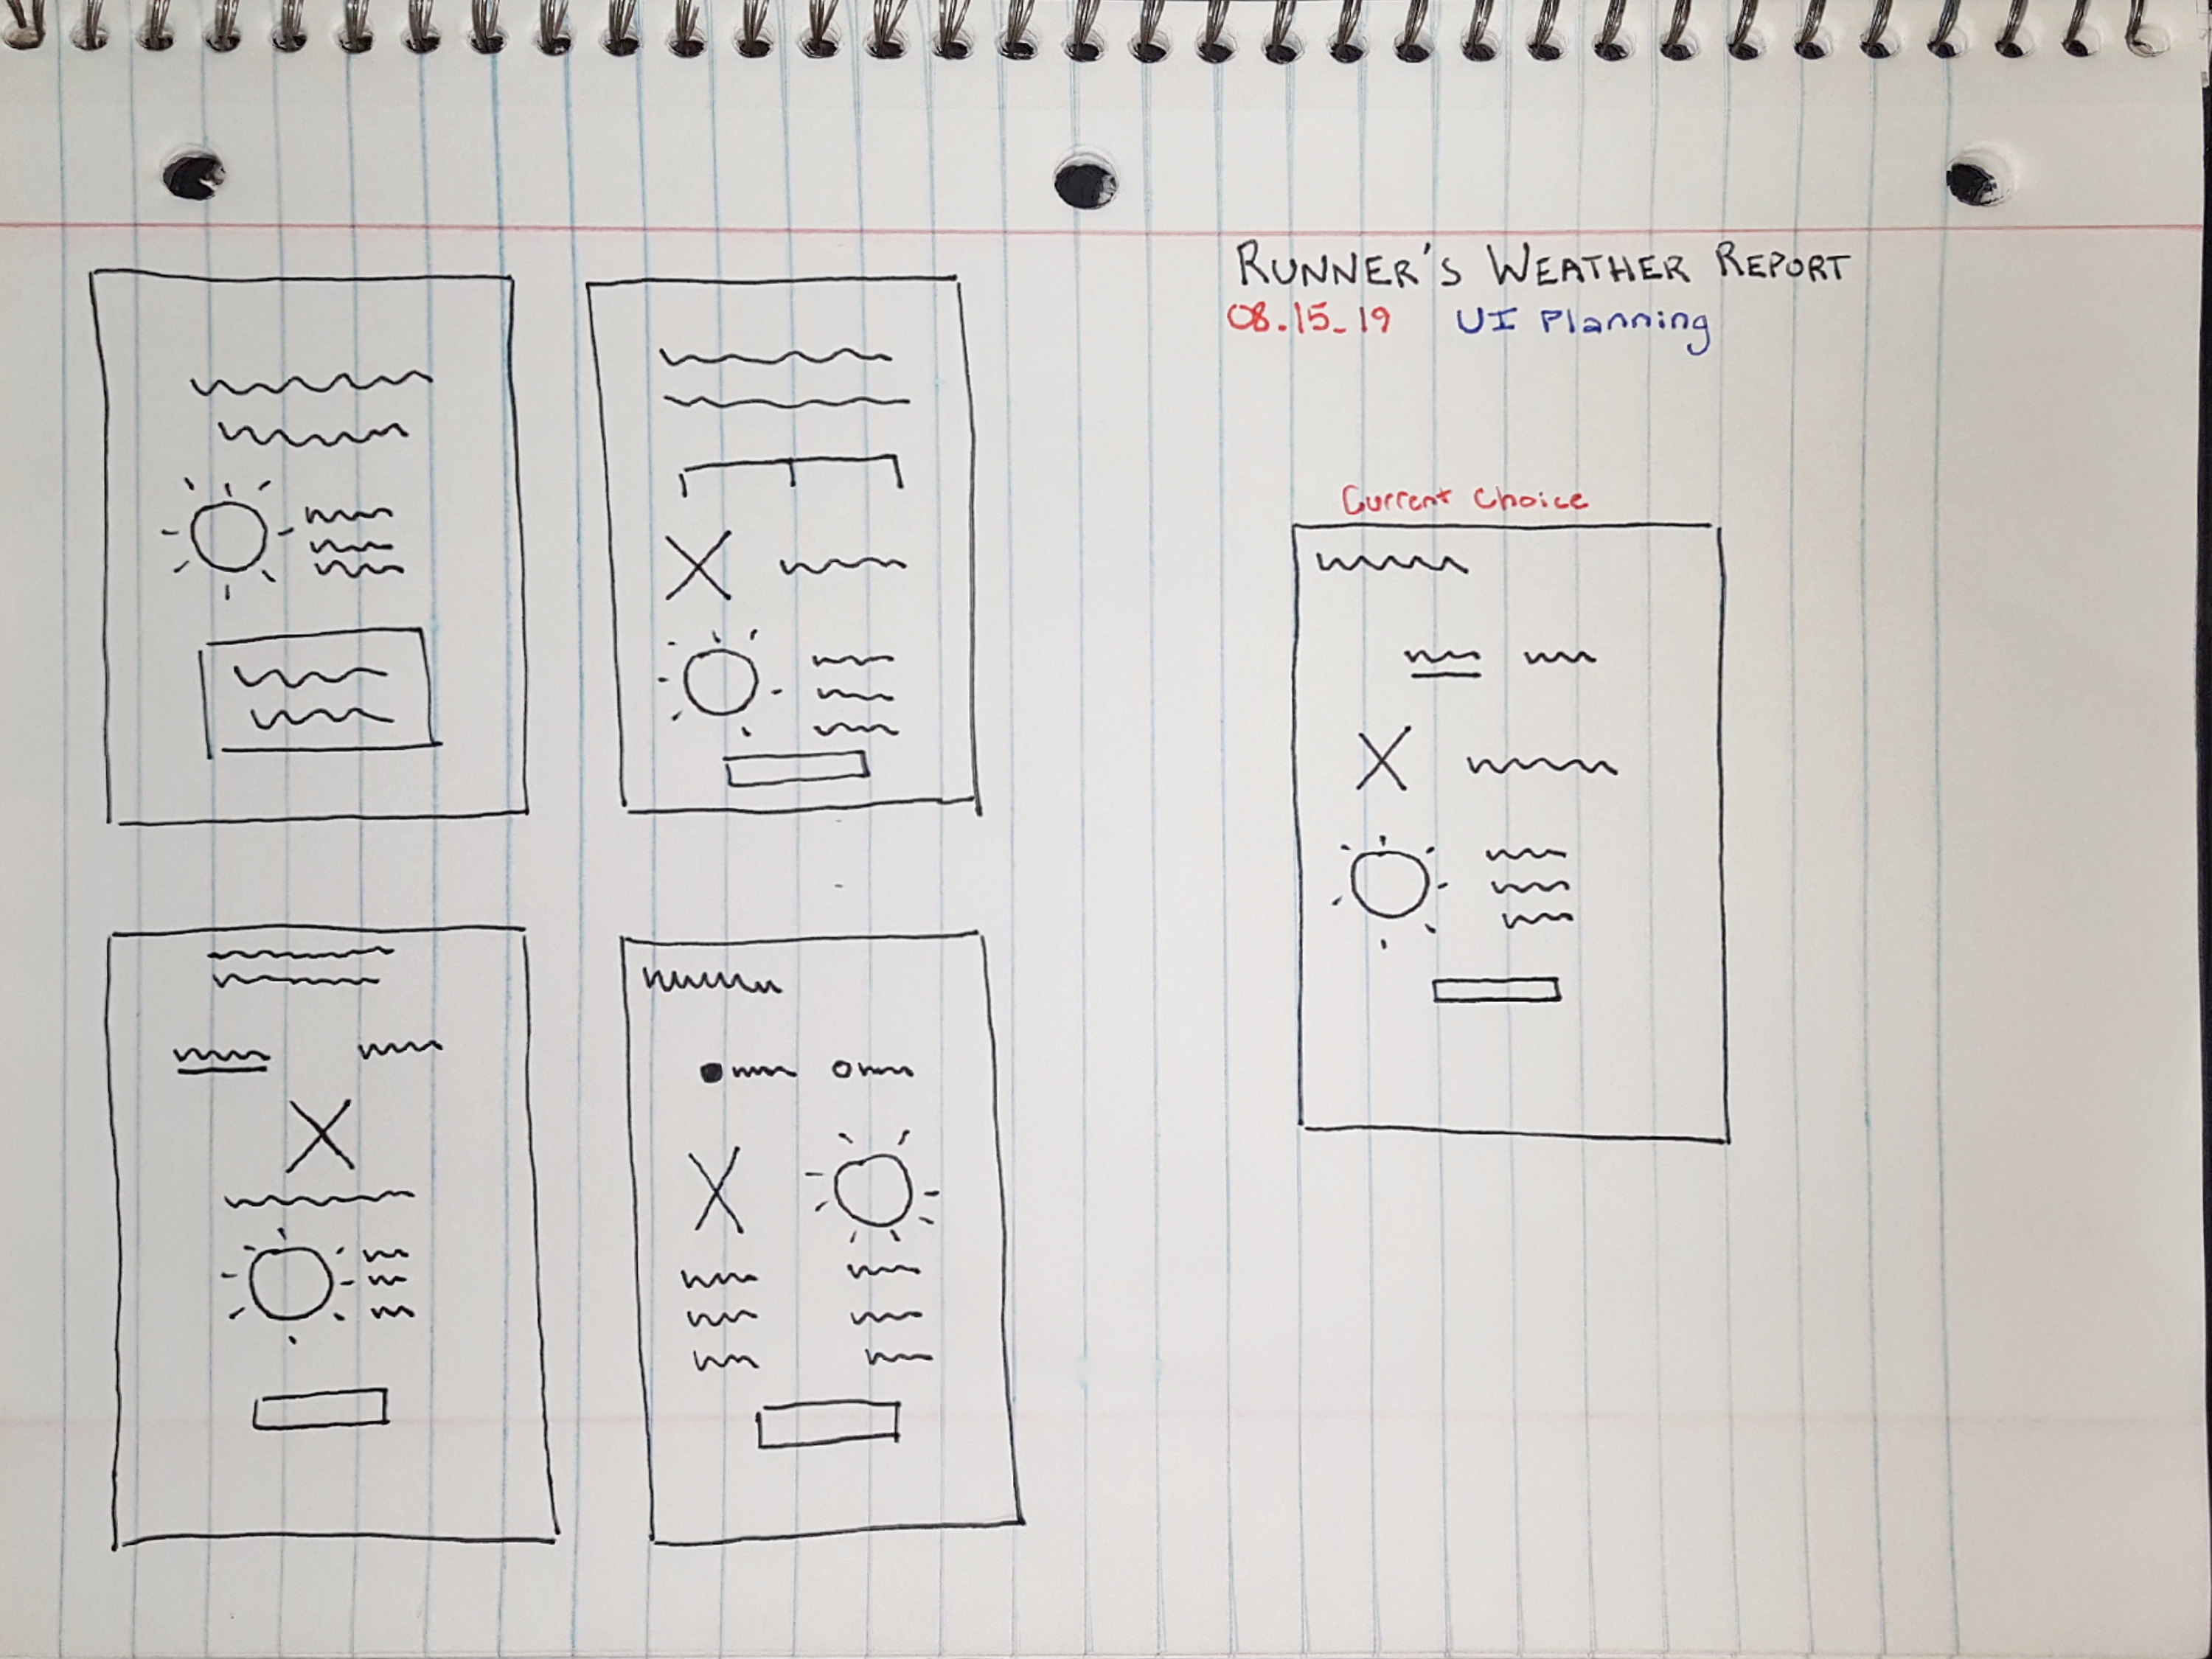 RUNNER'S WEATHER REPORT
08.15.19 UI Planning
Current Choice